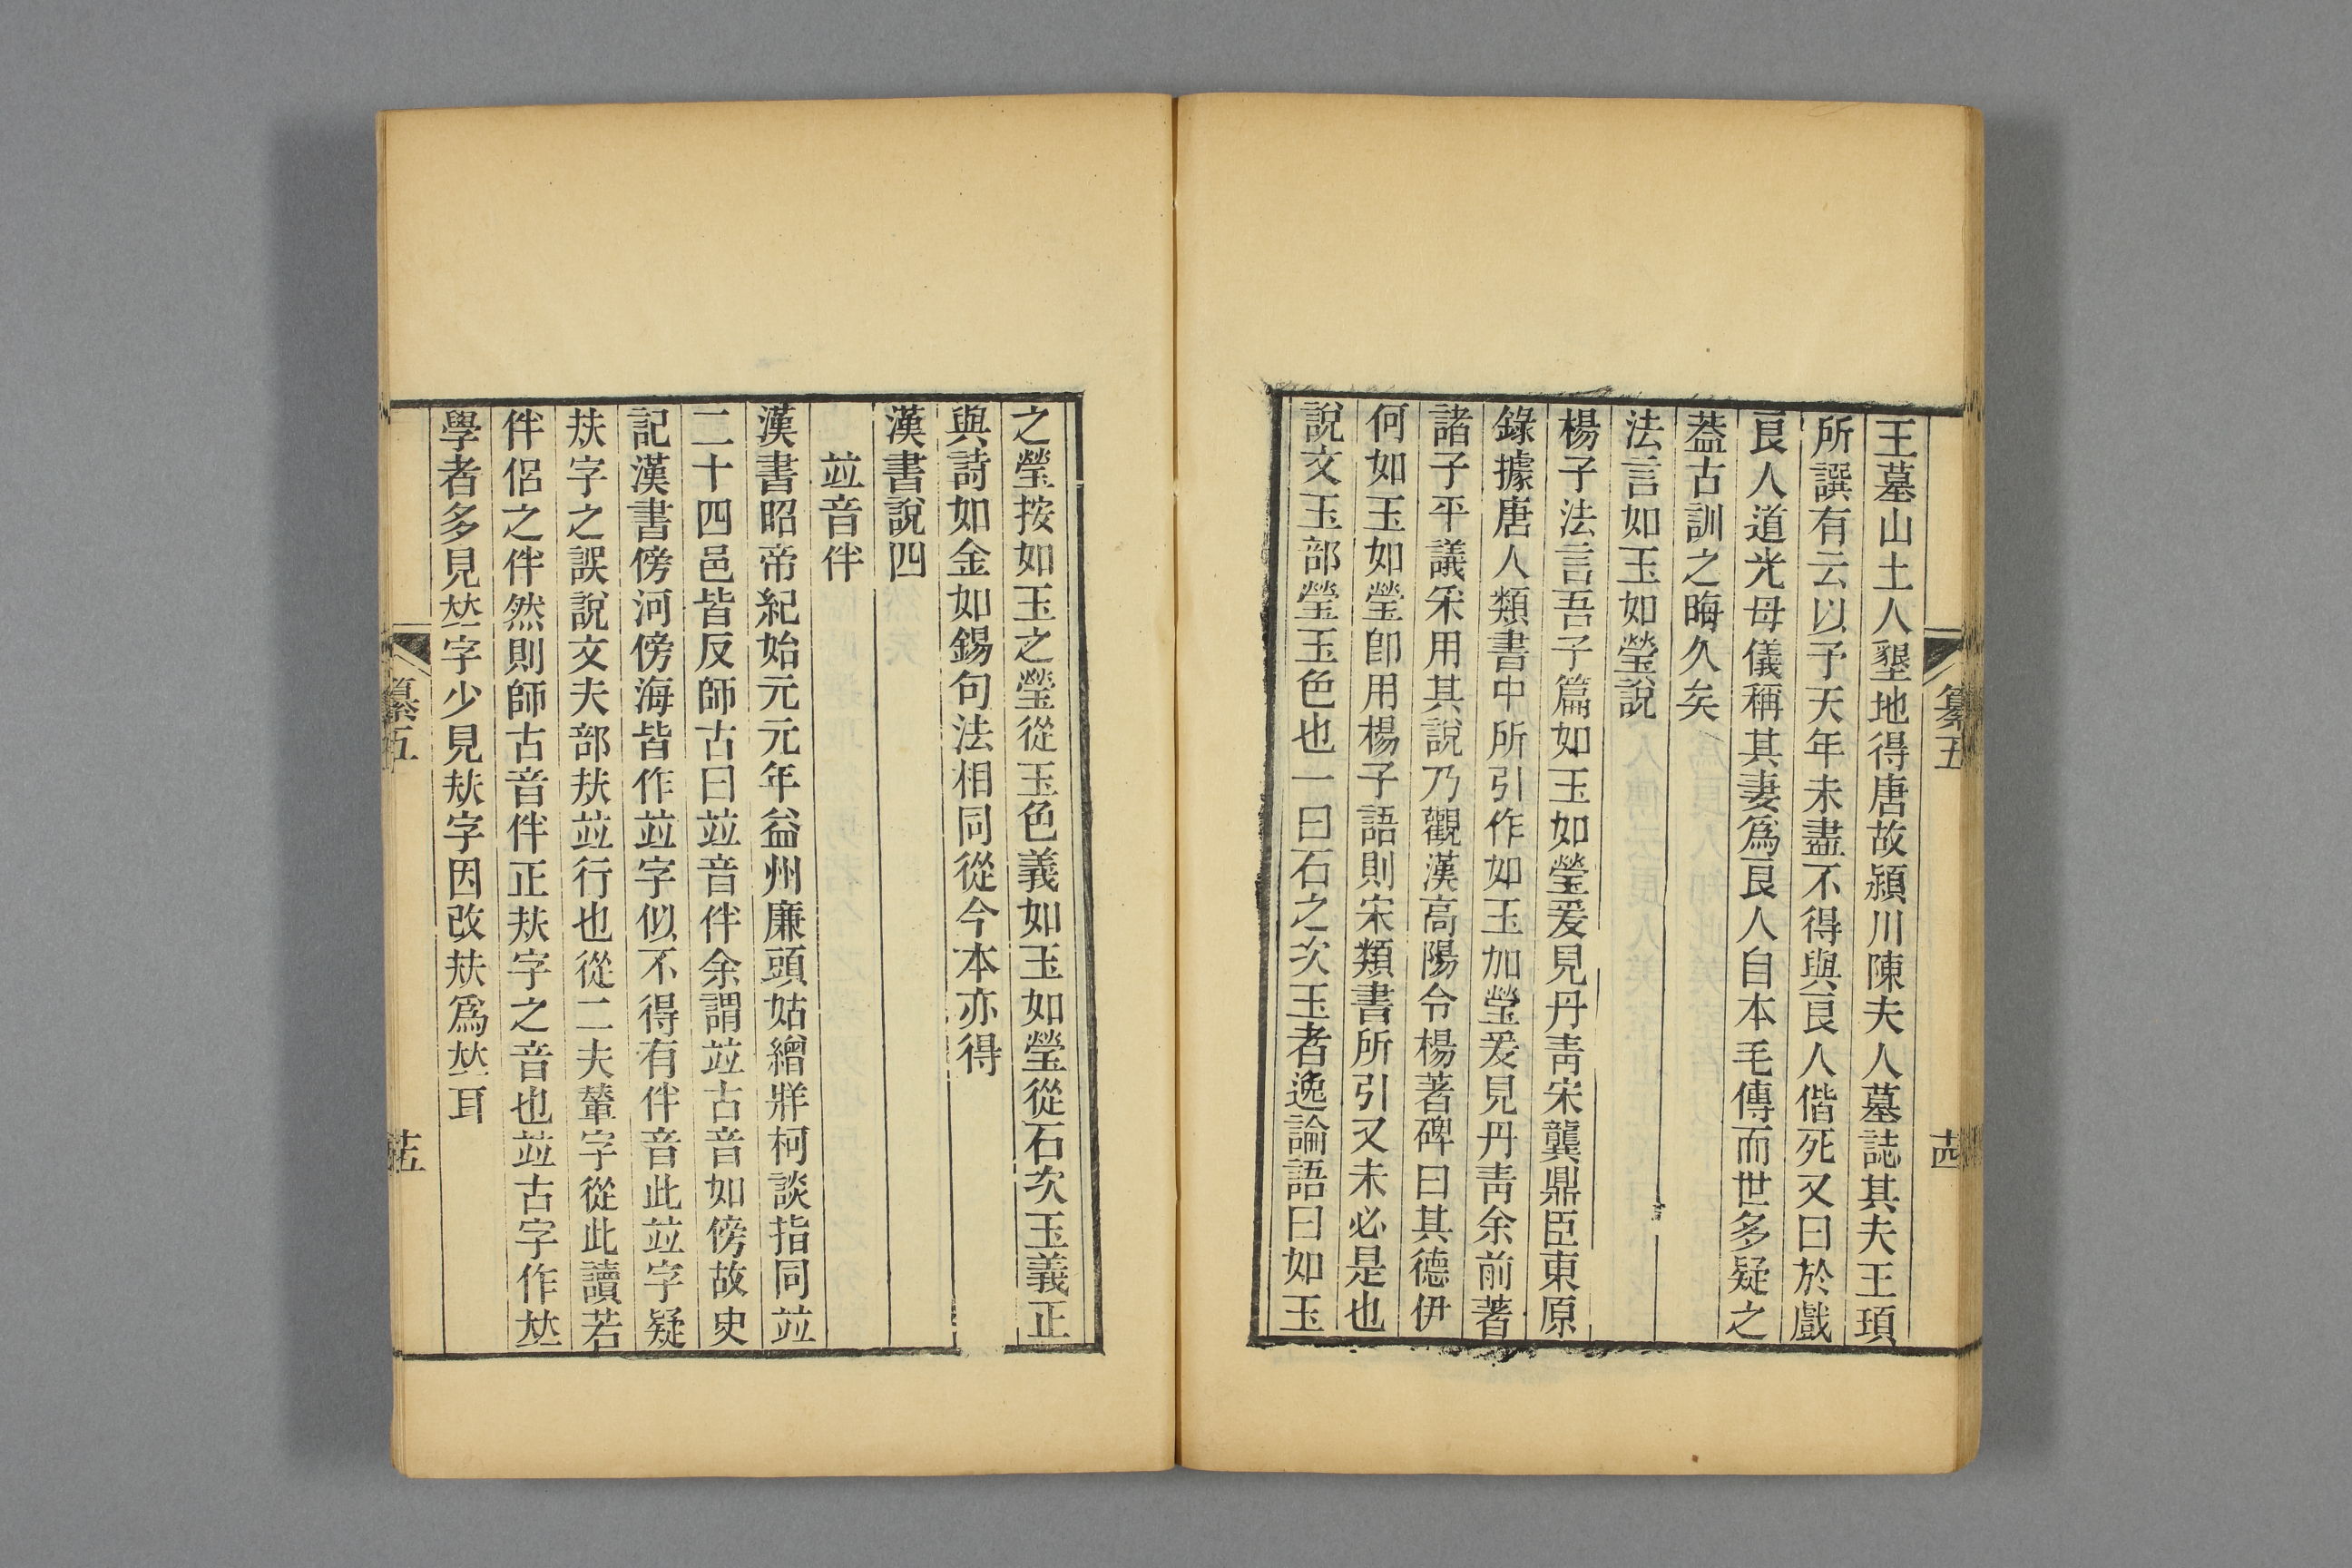 王墓山土人墾地得唐故潁川陳夫人墓誌其夫王頊
所譔有云以予天年未盡不得與良人偕死又曰於戲
良人道光母儀稱其妻爲良人自本毛傳而世多疑之
葢古訓之晦久矣
法言如玉如瑩說
楊子法言吾子篇如玉如瑩爰見丹靑宋龔鼎臣東原
錄據唐人類書中所引作如玉加瑩爰見丹靑余前著
諸子平議采用其說乃觀漢高陽令楊著碑曰其德伊
何如玉如瑩卽用楊子語則宋類書所引又未必是也
說文玉部瑩玉色也一曰石之次玉者逸論語曰如玉
纂五
十四
之瑩按如玉之瑩從玉色義如玉如瑩從石次玉義正
與詩如金如錫句法相同從今本亦得
漢書說四
竝音伴
漢書昭帝紀始元元年益州廉頭姑繒牂柯談指同竝
二十四邑皆反師古曰竝音伴余謂竝古音如傍故史
記漢書傍河傍海皆作竝字似不得有伴音此竝字疑
㚘字之誤說文夫部㚘竝行也從二夫輦字從此讀若
伴侶之伴然則師古音伴正㚘字之音也竝古字作𠀤
學者多見𠀤字少見㚘字因改㚘爲𠀤耳
纂五
十五